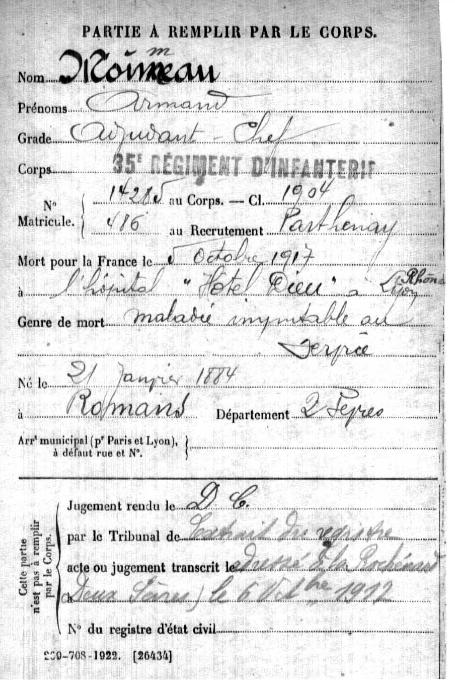 PARTIE À REMPLIR PAR LE CORPS.
Nom Moinneau
Prénoms Armand
Grade Adjudant-Chef
Corps 35e RÉGIMENT D'INFANTERIE
No 14285 au Corps. — Cl. 1904
Matricule. 416 au Recrutement Parthenay
Mort pour la France le 5 Octobre 1917
à l'hôpital "Hôtel Dieu" à Lyon Rhône
Genre de mort maladie imputable au
service
Né le 21 Janvier 1884
à Romans Département 2 Sèvres
Arrt municipal (pr Paris et Lyon),
à défaut rue et No.
Cette partie
n'est pas à remplir
par le Corps.
Jugement rendu le D C.
par le Tribunal de Extrait du registre
acte ou jugement transcrit le
à Deux Sèvres) le 6
No du registre d'état civil
260-708-1922. [26434]